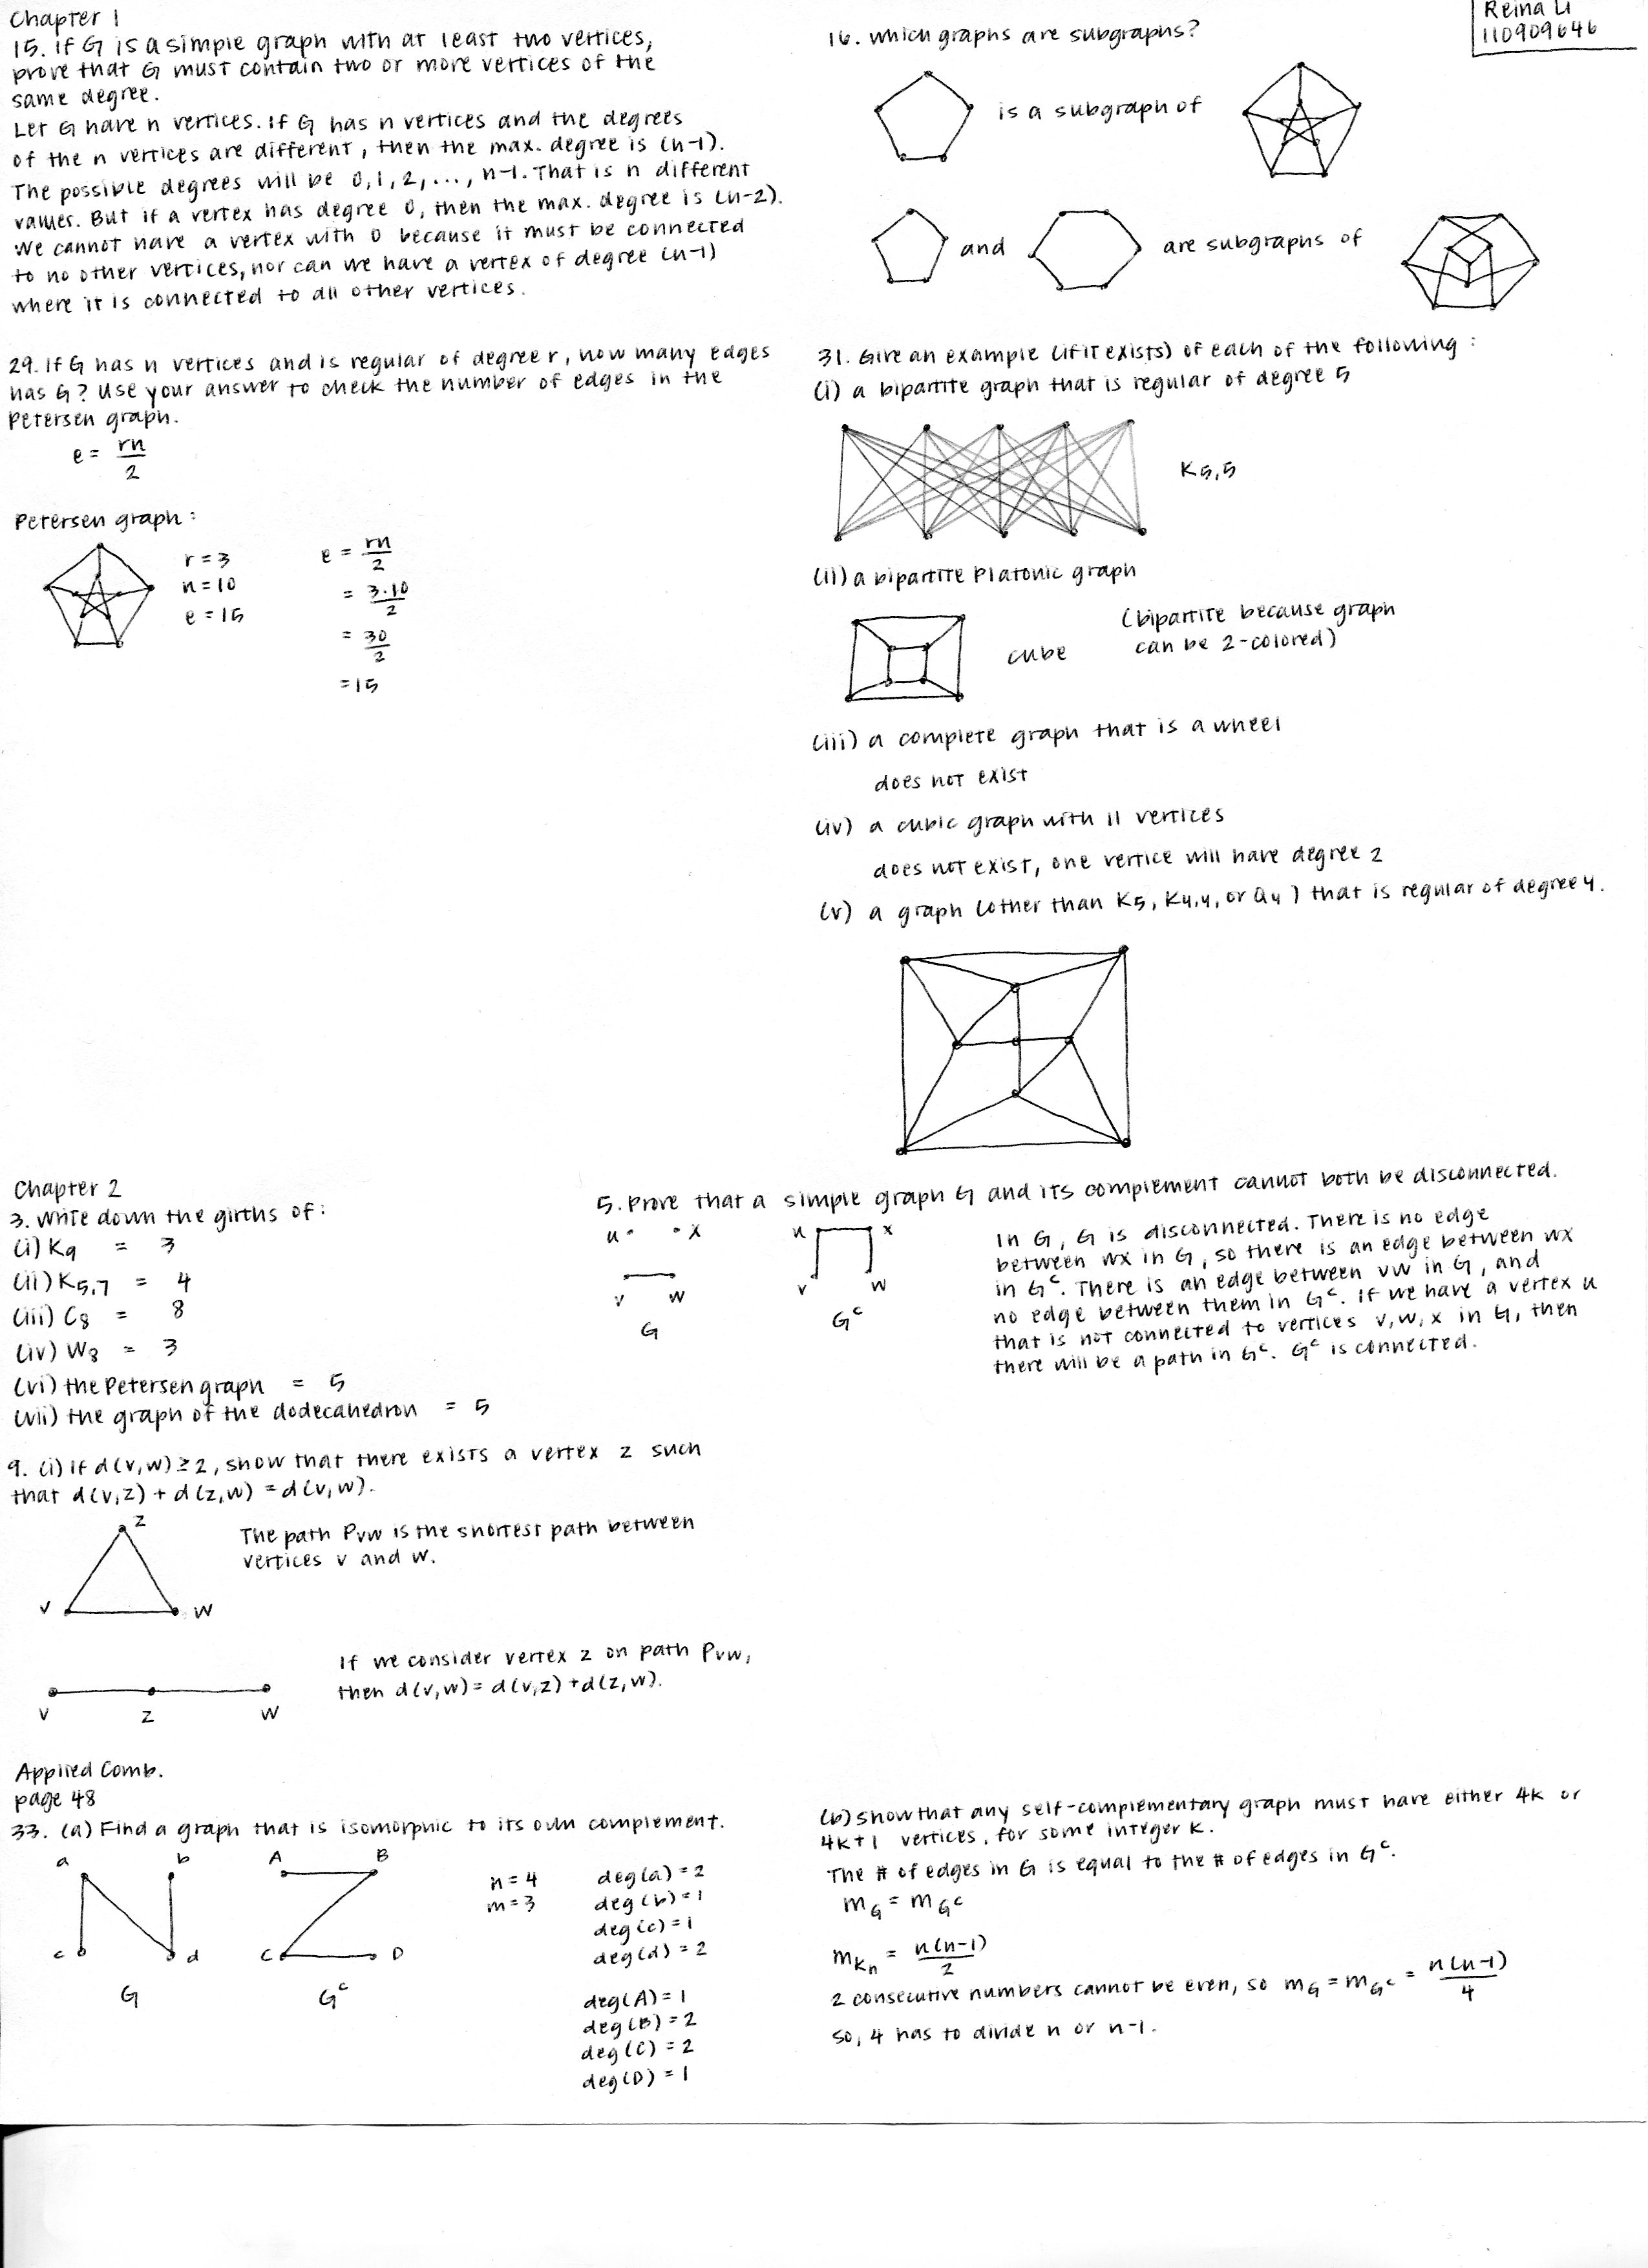 Reina Li
110909646
Chapter 1
15. If G is a simple graph with at least two vertices,
prove that G must contain two or more vertices of the
same degree.
Let G have n vertices. If G has n vertices and the degrees
of the n vertices are different, then the max. degree is (n-1).
The possible degrees will be 0,1,2,..., n-1. That is n different
values. But if a vertex has degree 0, then the max. degree is (n-2).
We cannot have a vertex with 0 because it must be connected
to no other vertices, nor can we have a vertex of degree (n-1)
where it is connected to all other vertices.
16. which graphs are subgraphs?
is a subgraph of
and
are subgraphs of
29. If G has n vertices and is regular of degree r, how many edges
has G? Use your answer to check the number of edges in the
Petersen graph.
e = rn/2
Petersen graph:
r = 3
n = 10
e = 15
e = rn/2
= 3·10/2
= 30/2
= 15
31. Give an example (if it exists) of each of the following:
(i) a bipartite graph that is regular of degree 5
K5,5
(ii) a bipartite Platonic graph
cube
(bipartite because graph
can be 2-colored)
(iii) a complete graph that is a wheel
does not exist
(iv) a cubic graph with 11 vertices
does not exist, one vertice will have degree 2
(v) a graph (other than K5, K4,4, or Q4) that is regular of degree 4.
Chapter 2
3. Write down the girths of:
(i) K9 = 3
(ii) K5,7 = 4
(iii) C8 = 8
(iv) W8 = 3
(vi) the Petersen graph = 5
(vii) the graph of the dodecahedron = 5
5. Prove that a simple graph G and its complement cannot both be disconnected.
u x
v w
G
u x
v w
Gᶜ
In G, G is disconnected. There is no edge
between wx in G, so there is an edge between wx
in Gᶜ. There is an edge between vw in G, and
no edge between them in Gᶜ. If we have a vertex u
that is not connected to vertices v, w, x in G, then
there will be a path in Gᶜ. Gᶜ is connected.
9. (i) If d(v,w) ≥ 2, show that there exists a vertex z such
that d(v,z) + d(z,w) = d(v,w).
z
v w
The path Pvw is the shortest path between
vertices v and w.
v z w
If we consider vertex z on path Pvw,
then d(v,w) = d(v,z) + d(z,w).
Applied Comb.
page 48
33. (a) Find a graph that is isomorphic to its own complement.
a b
c d
G
A B
C D
Gᶜ
n = 4
m = 3
deg(a) = 2
deg(b) = 1
deg(c) = 1
deg(d) = 2
deg(A) = 1
deg(B) = 2
deg(C) = 2
deg(D) = 1
(b) Show that any self-complementary graph must have either 4k or
4k+1 vertices, for some integer k.
The # of edges in G is equal to the # of edges in Gᶜ.
mG = mGᶜ
mKn = n(n-1)/2
2 consecutive numbers cannot be even, so mG = mGᶜ = n(n-1)/4
So, 4 has to divide n or n-1.